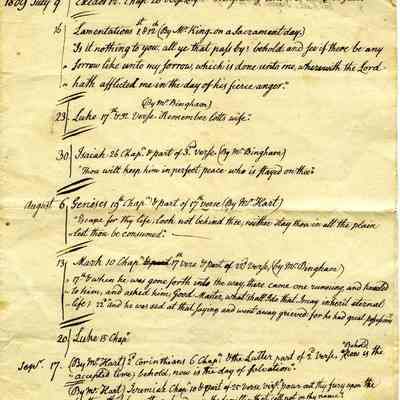 1809 July 9
16 Lamentations 1st 12th (By Mr. King on a Sacrament day)
"Is it nothing to you all ye that pass by? behold and see if there be any
sorrow like unto my sorrow, which is done unto me, wherewith the Lord
hath afflicted me in the day of his fierce anger."
(By Mr Bingham)
23 Luke 17th & 32 Verse. Remember Lotts wife.
30 Isaiah 26 Chap. & part of 3d Verse. (By Mr Bingham)
"Thou wilt keep him in perfect peace who is stayed on thee"
August 6 Genesis 19th Chap. & part of 17th verse (By Mr Hart)
"Escape for thy life; look not behind thee, neither stay thou in all the plain
lest thou be consumed."
13 Mark 10 Chap. 17th vere & part of 22d verse, (by Mr Bingham)
17th & when he was gone forth into the way, there came one running, and kneeled
to him, and asked him, Good Master, what shall I do that I may inherit eternal
life; 22d and he was sad at that saying and went away grieved: for he had great possessions
20 Luke 15 Chapr
Sepr. 17. (By Mr Hart) 2 Corinthians 6 Chapr & the Latter part of 2d Verse. "Behold, now is the
accepted time; behold, now is the day of salvation."
(By Mr. Hart) Jeremiah Chapr 10 & part of 25 verse "pour out thy fury upon the